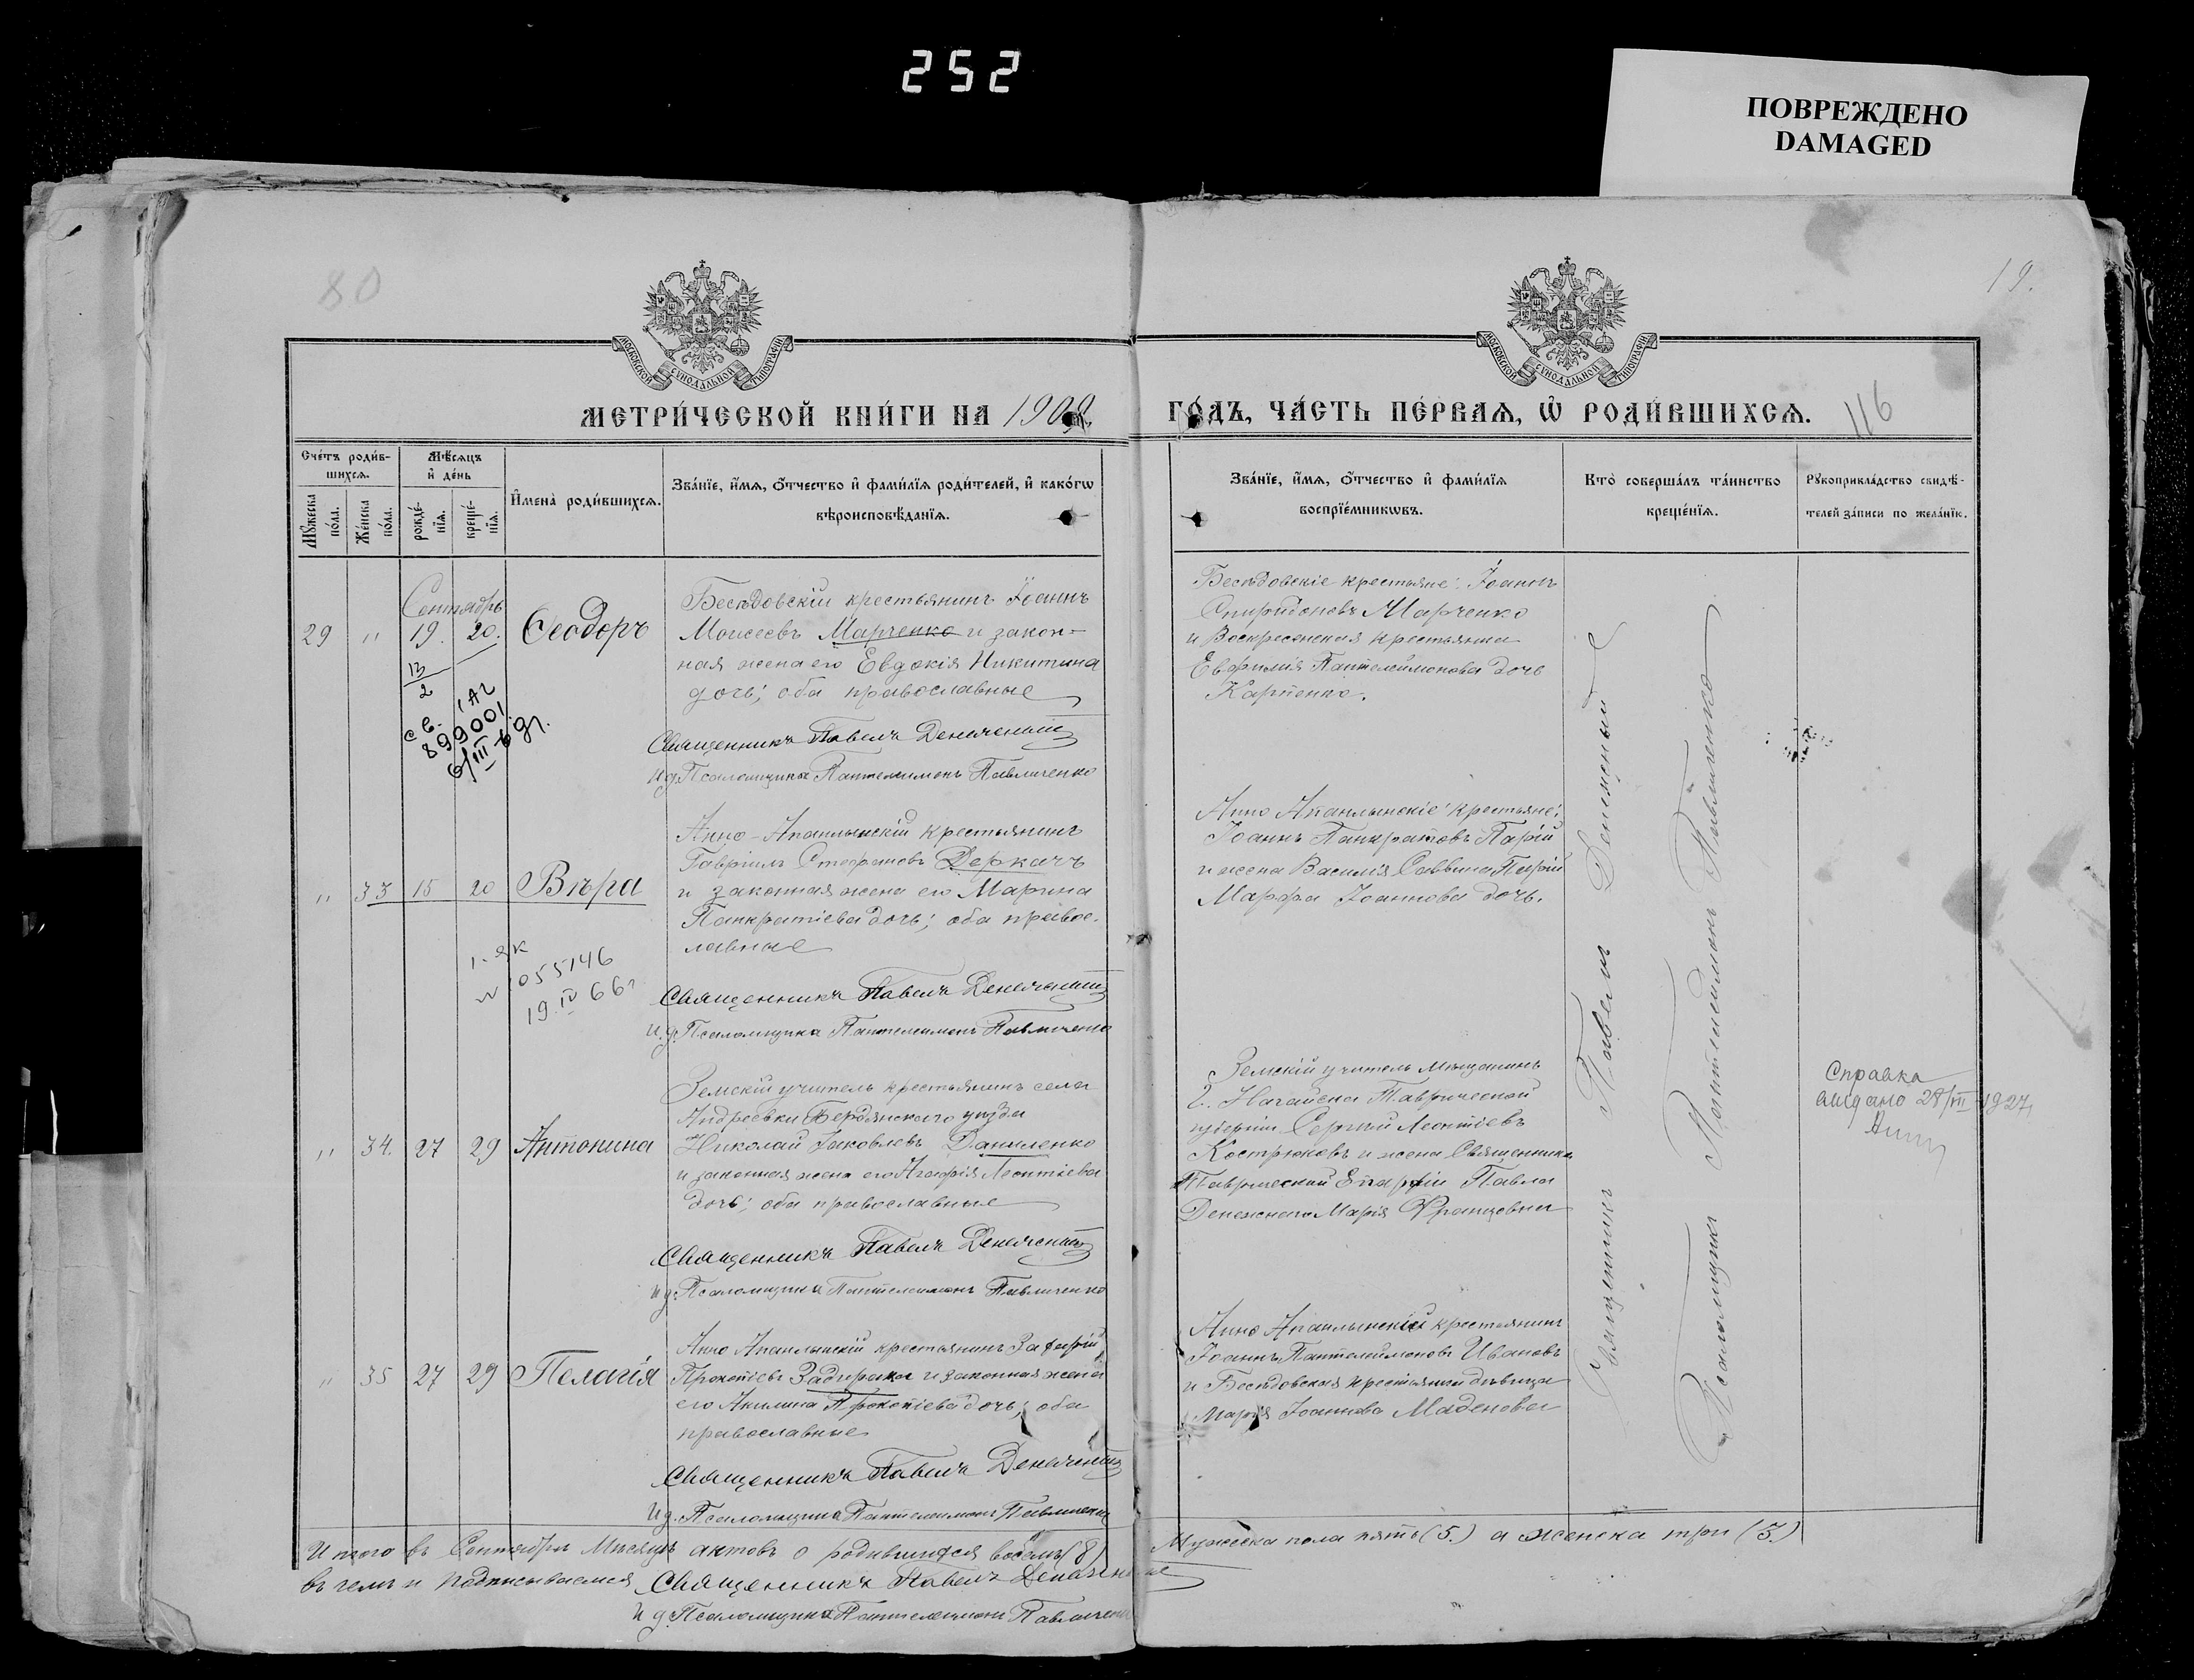 252
ПОВРЕЖДЕНО
DAMAGED
80
19.
МОСКОВСКОЙ СУНОДАЛЬНОЙ ТИПОГРАФІИ
МОСКОВСКОЙ СУНОДАЛЬНОЙ ТИПОГРАФІИ
МЕТРИ́ЧЕСКОЙ КНИ́ГИ НА 1909
ГО́ДЪ, ЧА́СТЬ ПЕ́РВАѦ, Ѡ РОДИ́ВШИХСѦ. 116
Сче́тъ роди́в-
шихсѧ.
Мꙋжеска по́ла.
Же́нска по́ла.
Мѣ́сѧцъ
и҆ де́нь
рожде́-
нїѧ.
креще́-
нїѧ.
И҆мена̀ роди́вшихсѧ.
Зва́нїе, и҆́мѧ, ѻ҆́тчество и҆ фами́лїѧ роди́телей, и҆ како́гѡ
вѣроисповѣ́данїѧ.
Зва́нїе, и҆́мѧ, ѻ҆́тчество и҆ фами́лїѧ
воспрїе́мникѡвъ.
Кто̀ соверша́лъ та́инство
креще́нїѧ.
Рꙋкоприкла́дство свидѣ́-
телей за́писи по жела́нїю.
Сентябрь
29 " 19. 20. Ѳеодоръ
Бесѣдовскій крестьянинъ Іоаннъ
Моисеевъ Марченко и закон=
ная жена его Евдокія Никитина
дочь; оба православные
Священникъ Павелъ Денежный
И д. Псаломщика Пантелеимонъ Павличенко
Бесѣдовскіе крестьяне: Іоаннъ
Спиридоновъ Марченко
и Воскресенская крестьянка
Евфимія Пантелеимонова дочь
Карпенко.
13
2
св. 1 АГ
899001
6/III-6 г.
" 33 15 20 Вѣра
Анно-Апанлынскій крестьянинъ
Гавріилъ Стефановъ Деркачъ
и законная жена его Марина
Панкратіева дочь; оба правос-
лавные
Священникъ Павелъ Денежный
И. д. Псаломщика Пантелеимонъ Павличенко
Анно Апанлынскіе крестьяне:
Іоаннъ Панкратовъ Парій
и жена Василія Саввина Парій
Марфа Іоаннова дочь.
I-ЯК
N 055146
19 IV 66 г
" 34. 27 29 Антонина
Земскій учитель крестьянинъ села
Андреевки Бердянскаго уѣзда
Николай Іаковлевъ Даниленко
и законная жена его Агафія Леонтіева
дочь; оба православные
Священникъ Павелъ Денежный
И д. Псаломщика Пантелеимонъ Павличенко
Земскій учитель мѣщанинъ
г. Ногайска Таврической
губерніи Сергій Леонтіевъ
Костржковъ и жена Священника
Таврической Епархіи Павла
Денежнаго Марія Францовна
Справка
видано 28/III-1927
" 35 27 29 Пелагія
Анно Апанлынскій крестьянинъ Захарій
Прокопіевъ Задирака и законная жена
его Акилина Прокопіева дочь; оба
православные
Священникъ Павелъ Денежный
И д. Псаломщика Пантелеимонъ Павличенко
Анно Апанлынскій крестьянинъ
Іоаннъ Пантелеимоновъ Ивановъ
и Бесѣдовская крестьянка дѣвица
Марія Іоаннова Маденова
Священникъ Павелъ Денежный
Псаломщикъ Пантелеимонъ Павличенко
Итого въ Сентябрѣ Мѣсяцѣ актовъ о родившихся восемь (8) Мужеска пола пять (5.) а женска три (3.)
въ чемъ и подписываемся Священникъ Павелъ Денежный
И д. Псаломщика Пантелеимонъ Павличенко